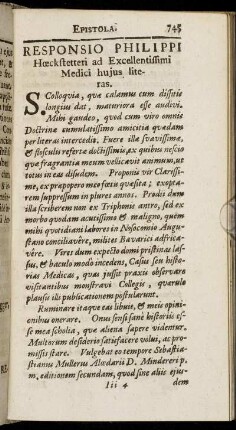 EPISTOLA. 745
RESPONSIO PHILIPPI
Hœckstetteri ad Excellentissimi
Medici hujus lite-
ras.
S. Colloquia, quæ calamus cum dissitis
longius dat, maturiora esse audivi.
Mihi gaudeo, quod cum viro omnis
Doctrinæ cumulatissimo amicitia quædam
per literas intercedit. Fuere illæ suavissimæ,
& flosculis refertæ doctissimis, ex quibus nescio
quæ fragrantia meum vellicavit animum, ut
totus in eas disudem. Proponis vir Clarissi-
me, ex præpopero meo fœtu quæsita; exopta-
rem suppressum in plures annos. Prodii dum
illa scriberem non ex Triphonte antro, sed ex
morbo quodam acutissimo & maligno, quem
mihi quotidiani labores in Nosocomio Augu-
stano conciliavêre, milites Bavarici adfrica-
vêre. Vires dum expecto domi pristinas las-
sus, & baculo modò incedens, Casus seu histo-
rias Medicas, quas jussit praxis observare
visitantibus monstravi Collegis, quarulo
plausu illi publicationem postularunt.
Ruminare itaque eas libuit, & meis opini-
onibus onerare. Onus sensi sanè historiis es-
se mea scholia, quæ aliena sapere videntur.
Multorum desiderio satisfacere volui, ac pro-
missis stare. Vulgebat eo tempore Sebastia-
stianus Mullerus Aloedarii D. Mindereri p.
m. editionem secundam, quod sine aliis ejus-
Iii 4 dem